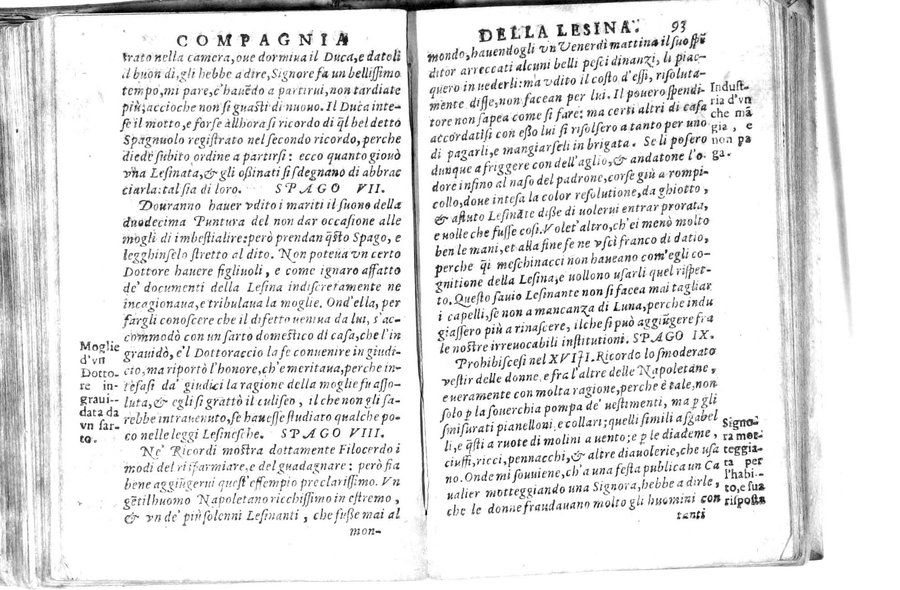 COMPAGNIA
trato nella camera, oue dormiua il Duca, e datoli
il buon di, gli hebbe a dire, Signore fa un bellissimo
tempo, mi pare, c'hauẽdo a partirui, non tardiate
più, accioche non si guasti di nuouo. Il Duca inte-
se il motto, e forse allhora si ricordo di q̃l bel detto
Spagnuolo registrato nel secondo ricordo, perche
diede subito ordine a partirsi: ecco quanto giouò
vna Lesinata, & gli osinati si sdegnano di abbrac
ciarla: tal sia di loro. SPAGO VII.
Douranno hauer vdito i mariti il suono della
duodecima Puntura del non dar occasione alle
mogli di imbestialire: però prendan q̃sto Spago, e
legghinselo stretto al dito. Non poteua vn certo
Dottore hauere figliuoli, e come ignaro affatto
de' documenti della Lesina indiscretamente ne
incagionaua, e tribulaua la moglie. Ond'ella, per
fargli conoscere che il difetto ueniua da lui, s'ac-
commodò con un sarto domestico di casa, che l'in
grauidò, e'l Dottoraccio la fe conuenire in giudi-
cio, ma riportò l'honore, ch'e meritaua, perche in
tesasi da' giudici la ragione della moglie fu asso-
luta, & egli si grattò il culiseo, il che non gli sa-
rebbe intrauenuto, se hauesse studiato qualche po-
co nelle leggi Lesinesche. SPAGO VIII.
Ne' Ricordi mostra dottamente Filocerdo i
modi del risparmiare, e del guadagnare: però fia
bene aggiũgerui quest'essempio preclarissimo. Vn
gẽtilhuomo Napoletano ricchissimo in estremo,
& vn de' più solenni Lesinanti, che fusse mai al
mon-
Moglie
d'vn
Dotto-
re in-
graui--
data da
vn sar-
to.
DELLA LESINA. 93
mondo, hauendogli vn Venerdì mattina il suo spẽ
ditor arreccati alcuni belli pesci dinanzi, li piac-
quero in uederli: ma vdito il costo d'essi, risoluta-
mente disse, non facean per lui. Il pouero spendi-
tore non sapea come si fare: ma certi altri di casa
accordatisi con esso lui si risolsero a tanto per uno
di pagarli, e mangiarseli in brigata. Se li posero
dunque a friggere con dell'aglio, & andatone l'o-
dore infino al naso del padrone, corse giù a rompi-
collo, doue intesa la color resolutione, da ghiotto,
& astuto Lesinãte disse di uolerui entrar prorata,
e uolle che fusse cosi. Volet'altro, ch'ei menò molto
ben le mani, et alla fine se ne vscì franco di datio,
perche q̃i meschinacci non haueano com'egli co-
gnitione della Lesina, e uollono usarli quel rispet-
to. Questo sauio Lesinante non si facea mai tagliar
i capelli, se non a mancanza di Luna, perche indu
giassero più a rinascere, il che si può aggiũgere fra
le nostre irreuocabili institutioni. SPAGO IX.
Prohibiscesi nel XVIII. Ricordo lo smoderato
vestir delle donne, e fra l'altre delle Napoletane,
e ueramente con molta ragione, perche è tale, non
solo p la souerchia pompa de' uestimenti, ma p gli
smisurati pianelloni, e collari: quelli simili a sgabel
li, e q̃sti a ruote di molini a uento; e p le diademe,
ciuffi, ricci, pennacchi, & altre diauolerie, che usa
no. Onde mi souuiene, ch'a una festa publica un Ca
ualier motteggiando una Signora, hebbe a dirle,
che le donne fraudauano molto gli huomini con
tanti
Indust-
ria d'vn
che mã
gia, e
non pa
ga.
Signo-
ra mot-
teggia-
ta per
l'habi-
to, e sua
risposta